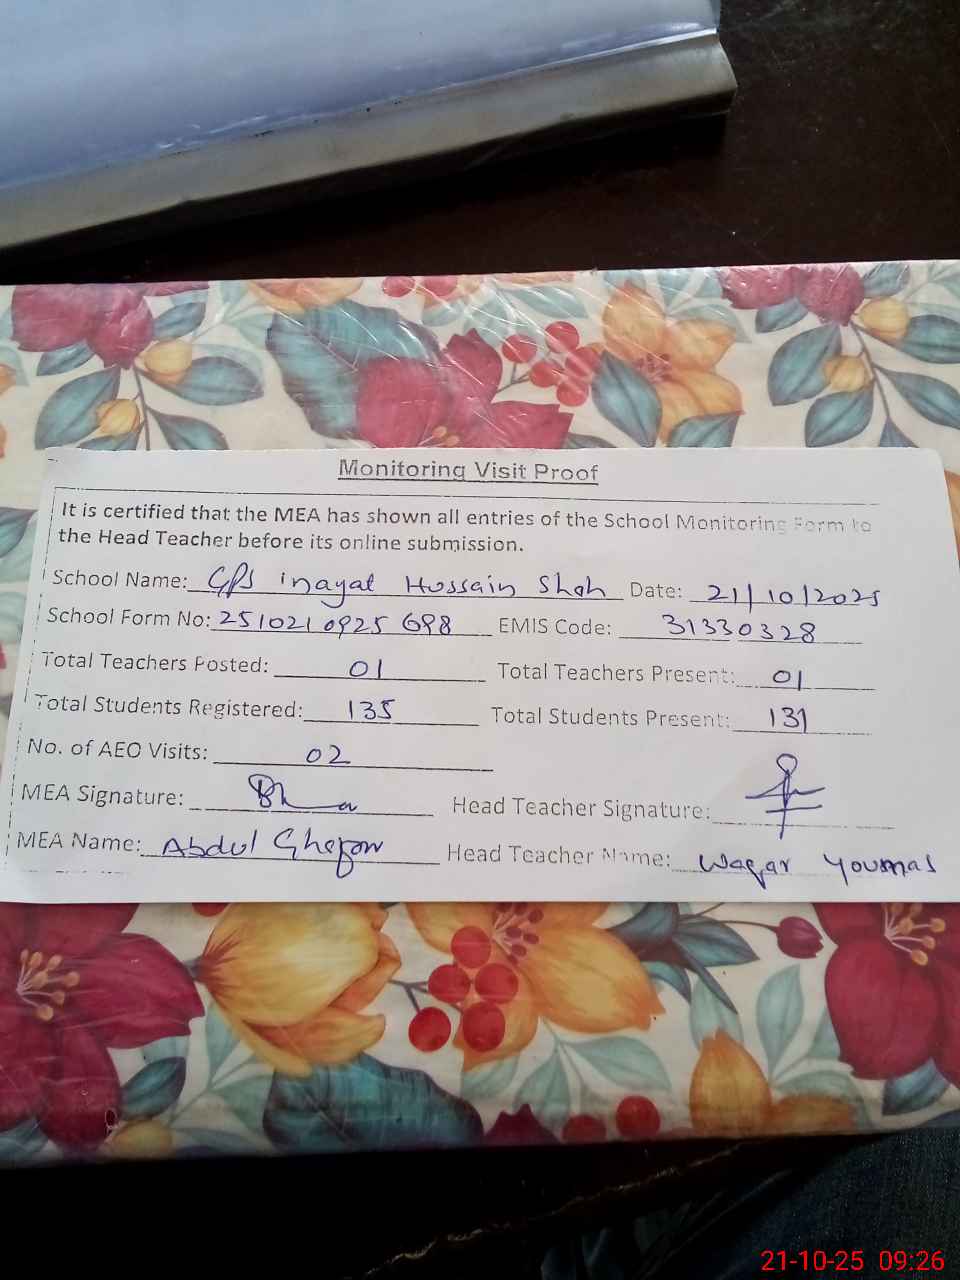 Monitoring Visit Proof
It is certified that the MEA has shown all entries of the School Monitoring Form to
the Head Teacher before its online submission.
School Name: GPS inayat Hussain Shah Date: 21/10/2025
School Form No: 2510210925698 EMIS Code: 31330328
Total Teachers Posted: 01 Total Teachers Present: 01
Total Students Registered: 135 Total Students Present: 131
No. of AEO Visits: 02
MEA Signature: Head Teacher Signature:
MEA Name: Abdul Head Teacher Name: Waqar
21-10-25 09:26